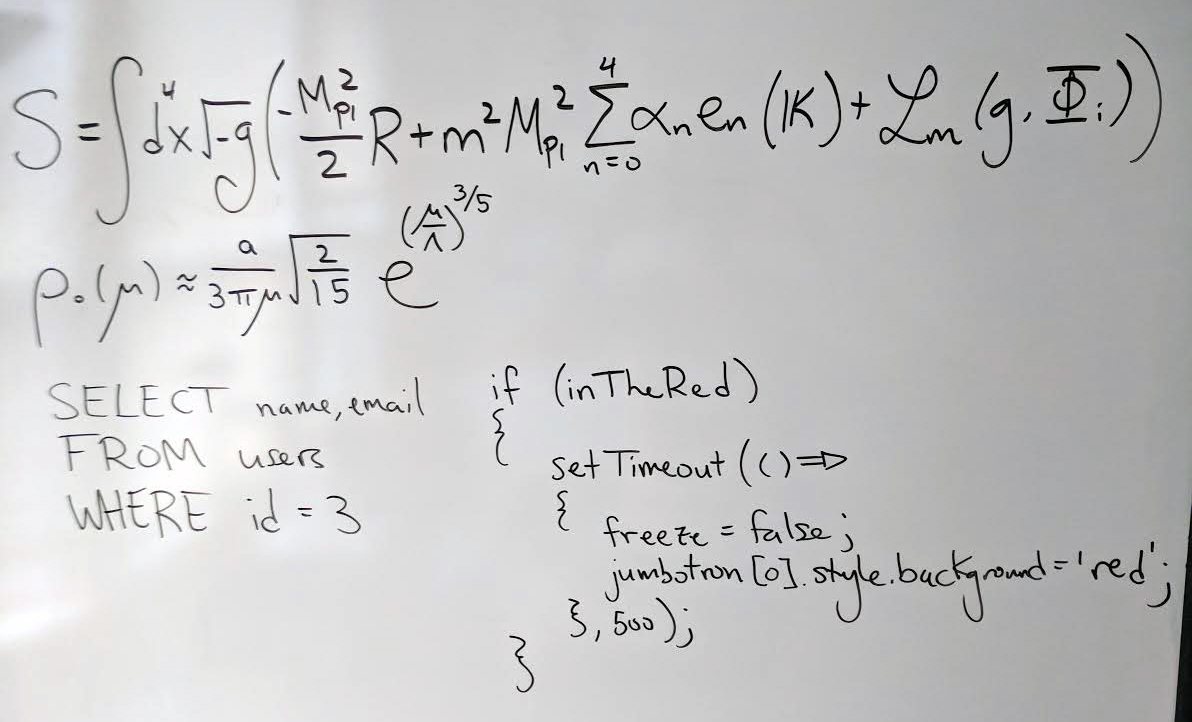 S = ∫d⁴x√-g (-M²ₚₗ/2 R + m²M²ₚₗ ∑ₙ₌₀⁴ αₙeₙ(K) + ℒₘ(g, Φᵢ))
ρ₀(μ) ≈ a/3πμ √2/15 e^(μ/Λ)^3/5
SELECT name, email
FROM users
WHERE id = 3
if (inTheRed)
{
setTimeout(() =>
{
freeze = false;
jumbotron[0].style.background = 'red';
}, 500);
}